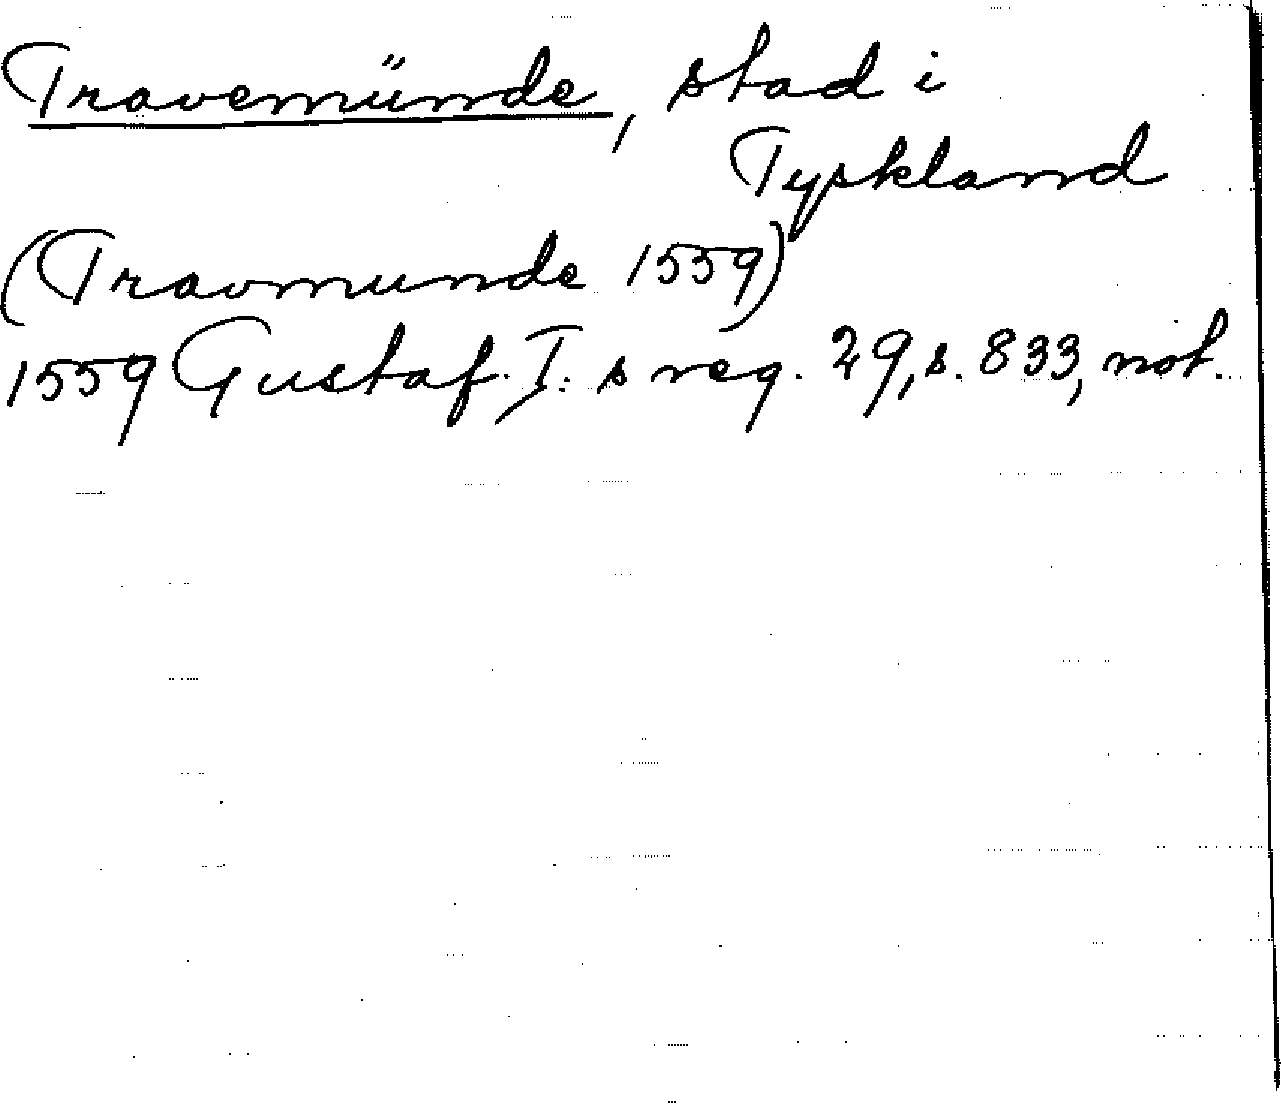 Travemünde, stad i
Tyskland
(Travmunde 1559)
1559 Gustaf I:s reg. 29, s. 833, not.